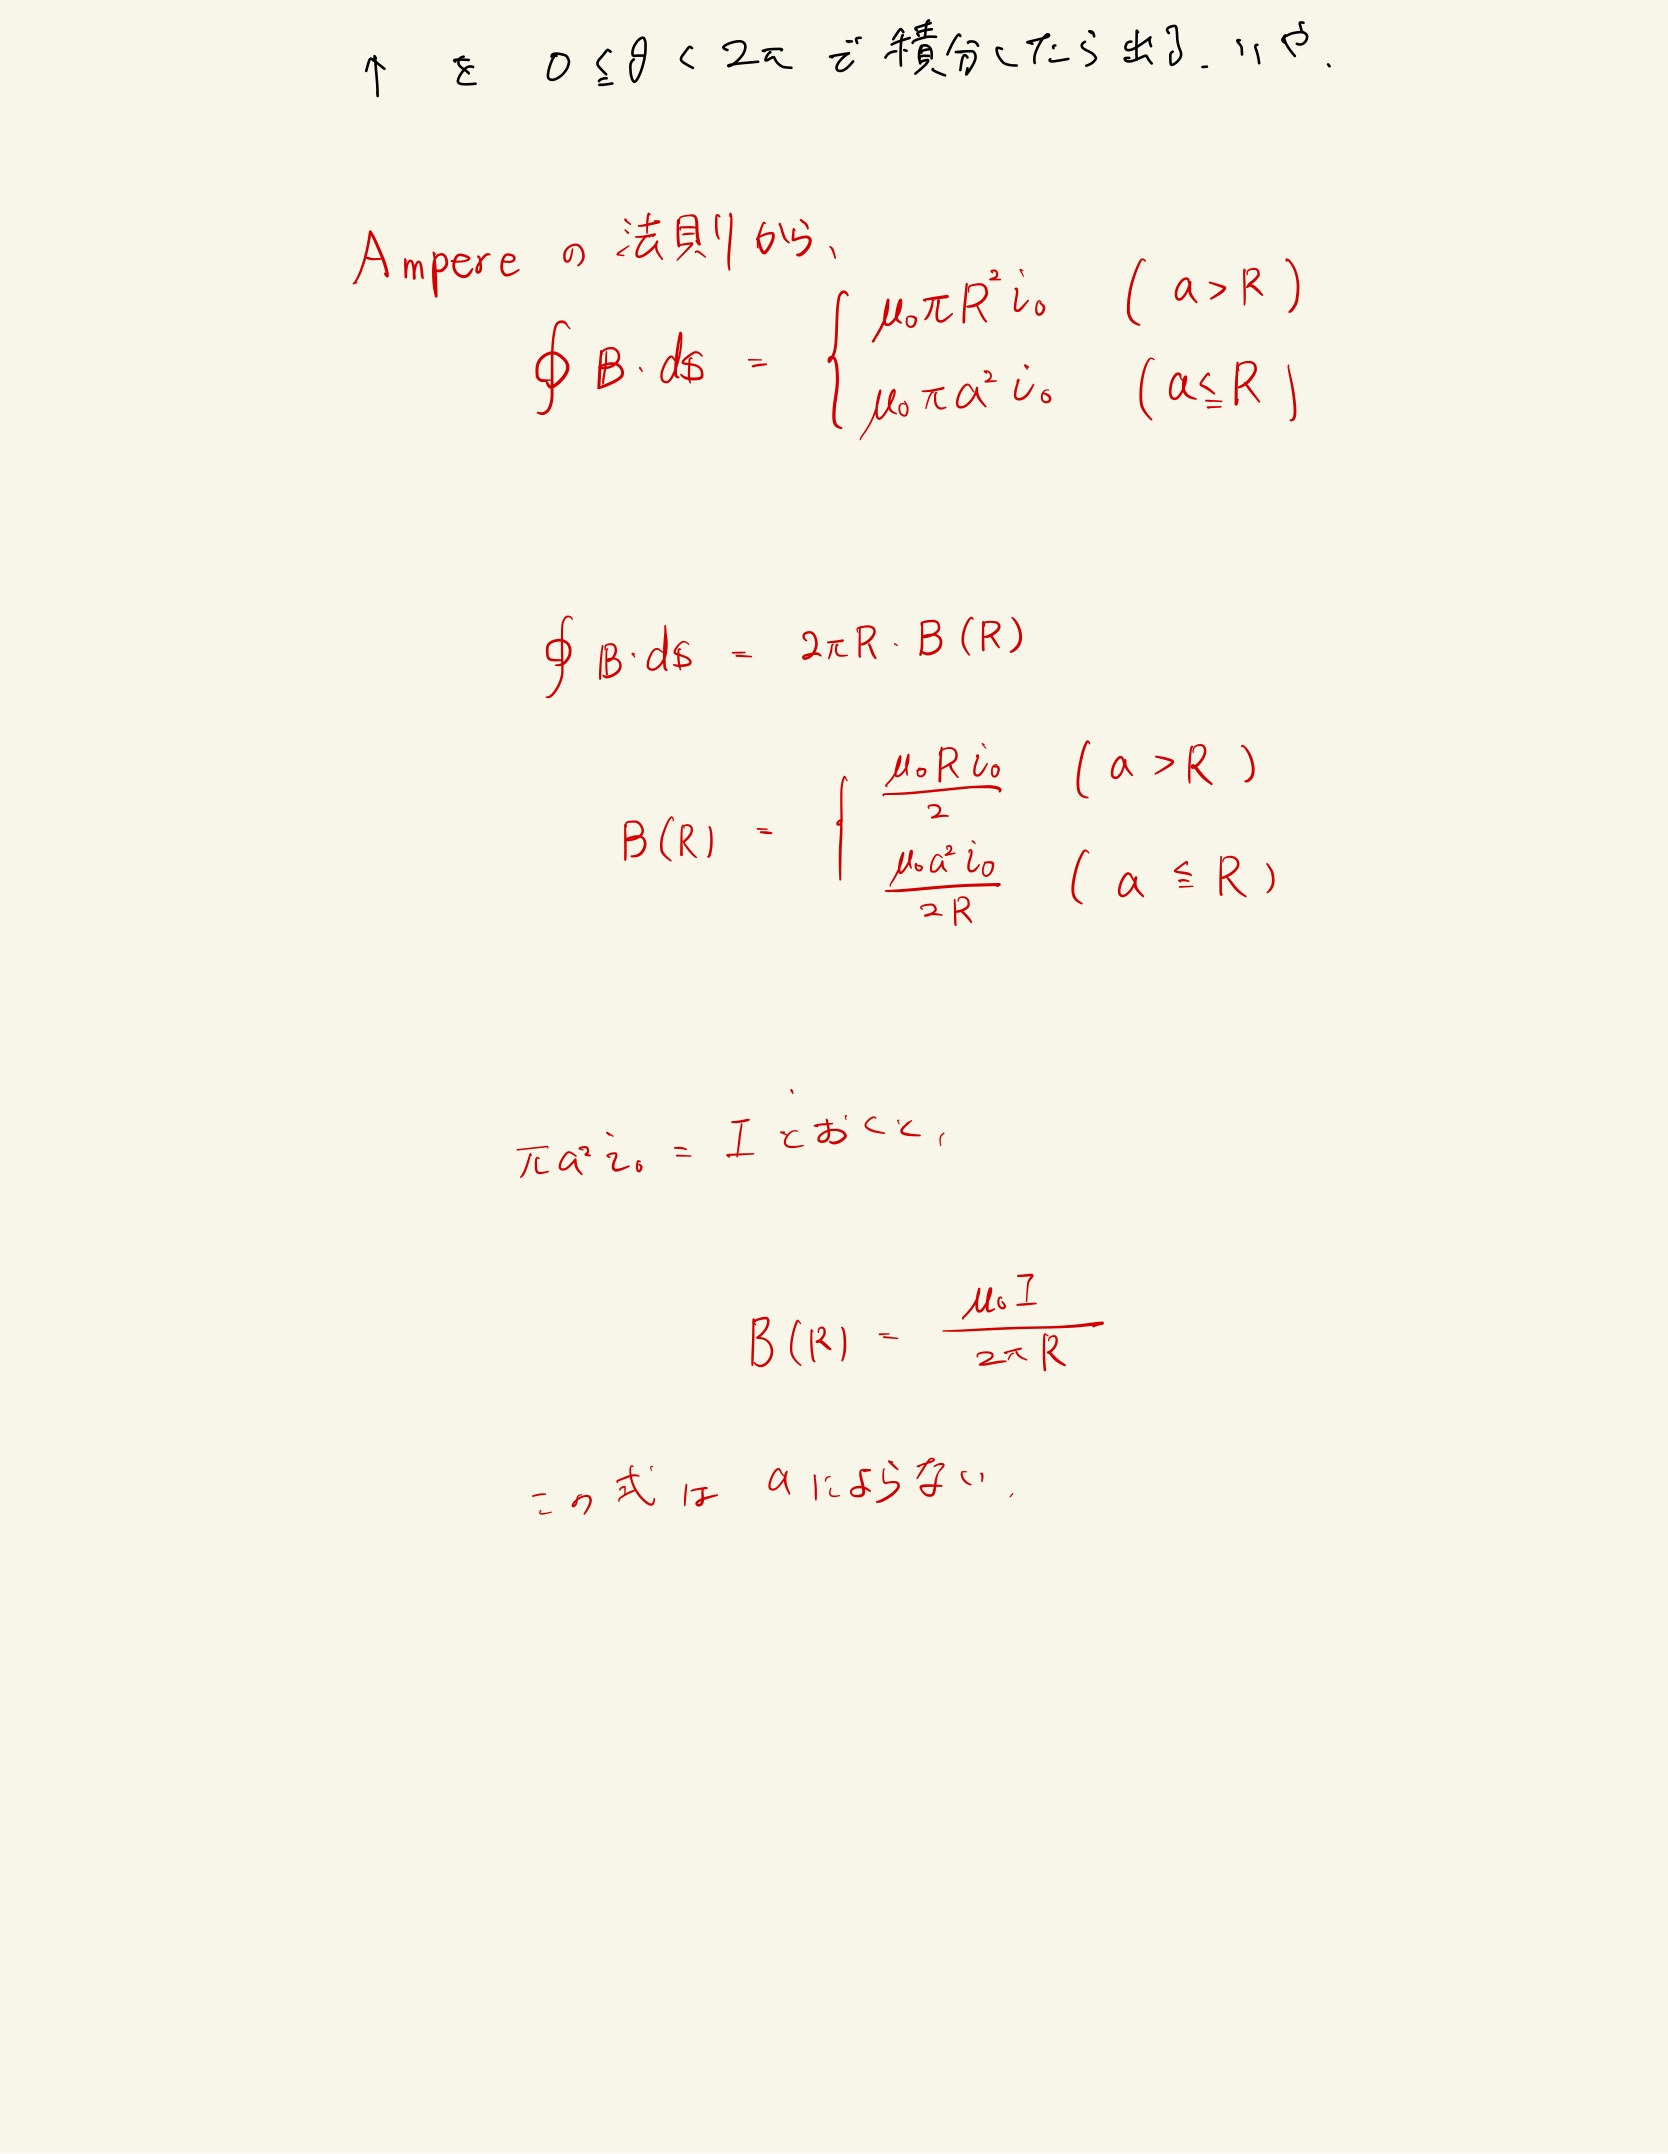 ↑ を 0≦θ<2π で 積分したら出る. いや.
Ampere の 法則から、
∮ B・ds = { μ₀πR²i₀ (a>R)
μ₀πa²i₀ (a≦R)
∮ B・ds = 2πR・B(R)
B(R) = { μ₀Ri₀/2 (a>R)
μ₀a²i₀/2R (a≦R)
πa²i₀ = I とおくと,
B(R) = μ₀I/2πR
この式は aによらない.